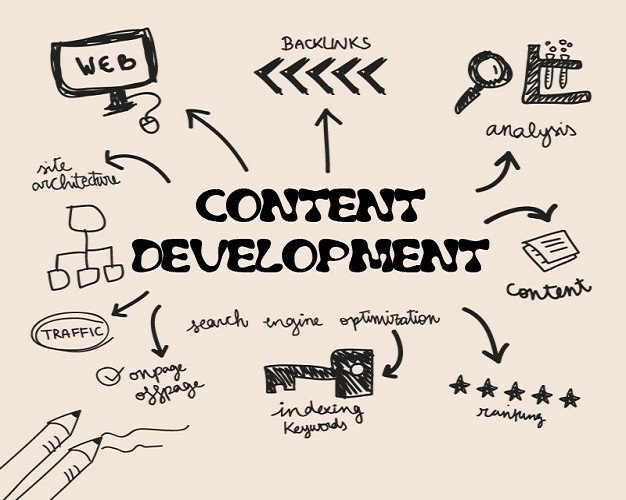 BACKLINKS
WEB
analysis
site
architecture
CONTENT
DEVELOPMENT
content
TRAFFIC
search engine optimization
onpage
offpage
indexing
Keywords
ranking